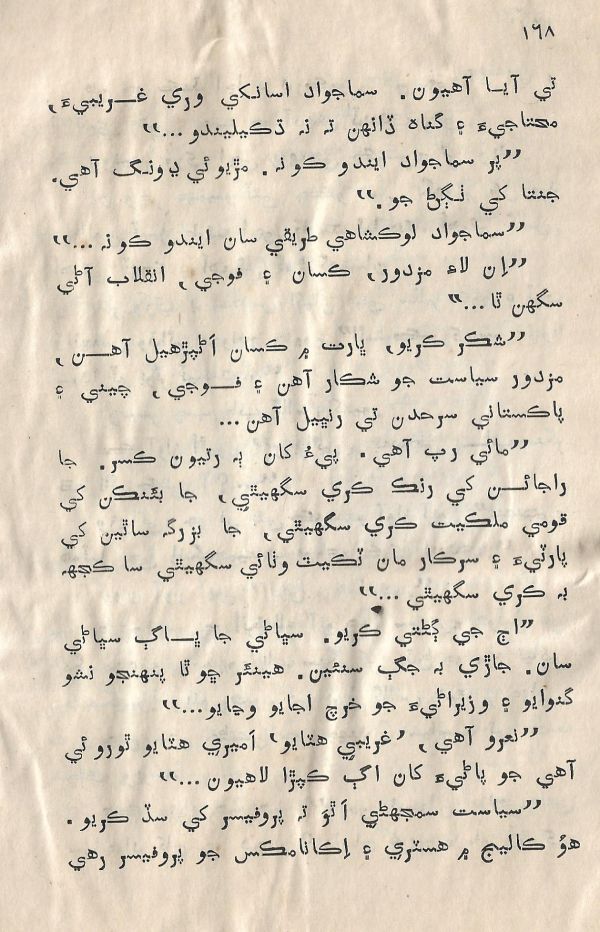 ١٦٨
تي آيا آهيون. سماجواد اسانکي وري غريبيءَ،
محتاجيءَ ۽ گناه ڏانهن ته نہ ڌڪيليندو...“
”پر سماجواد ايندو ڪونہ. مڙيوئي ڍونگ آهي.
جنتا کي ٺڳڻ جو.“
”سماجواد لوڪشاهي طريقي سان ايندو ڪونہ...“
”اِن لاءِ مزدور، ڪسان ۽ فوجي، انقلاب آڻي
سگهن ٿا...“
”شڪر ڪريو، ڀارت ۾ ڪسان اَڻپڙهيل آهن،
مزدور سياست جو شڪار آهن ۽ فوجي، چيني ۽
پاڪستاني سرحدن تي رنڀيل آهن...
”مائي رپ آهي. پيءُ کان ٻہ رتيون ڪسر. جا
راجائن کي رنڪ ڪري سگهيٿي، جا بئنڪن کي
قومي ملڪيت ڪري سگهيٿي، جا بزرگ ساٿين کي
پارٽيءَ ۽ سرڪار مان ٽڪيٽ وٺائي سگهيٿي سا ڪجهہ
بہ ڪري سگهيٿي...“
”اڄ جي ڳڻتي ڪريو. سڀاڻي جا ڀاڳ سڀاڻي
سان. جاڙي بہ جڳ سنئين. هينئر ڇو ٿا پنهنجو نشو
گنوايو ۽ وزيراڻيءَ جو خرچ اجايو وڃايو...“
”نعرو آهي، ’غريبي هٽايو‘ اَميري هٽايو ٿوروئي
آهي جو پاڻيءَ کان اڳ ڪپڙا لاهيون...“
”سياست سمجهڻي اَٿوَ تہ پروفيسر کي سڏ ڪريو.
هوُ ڪاليج ۾ هسٽري ۽ اِڪانامڪس جو پروفيسر رهي